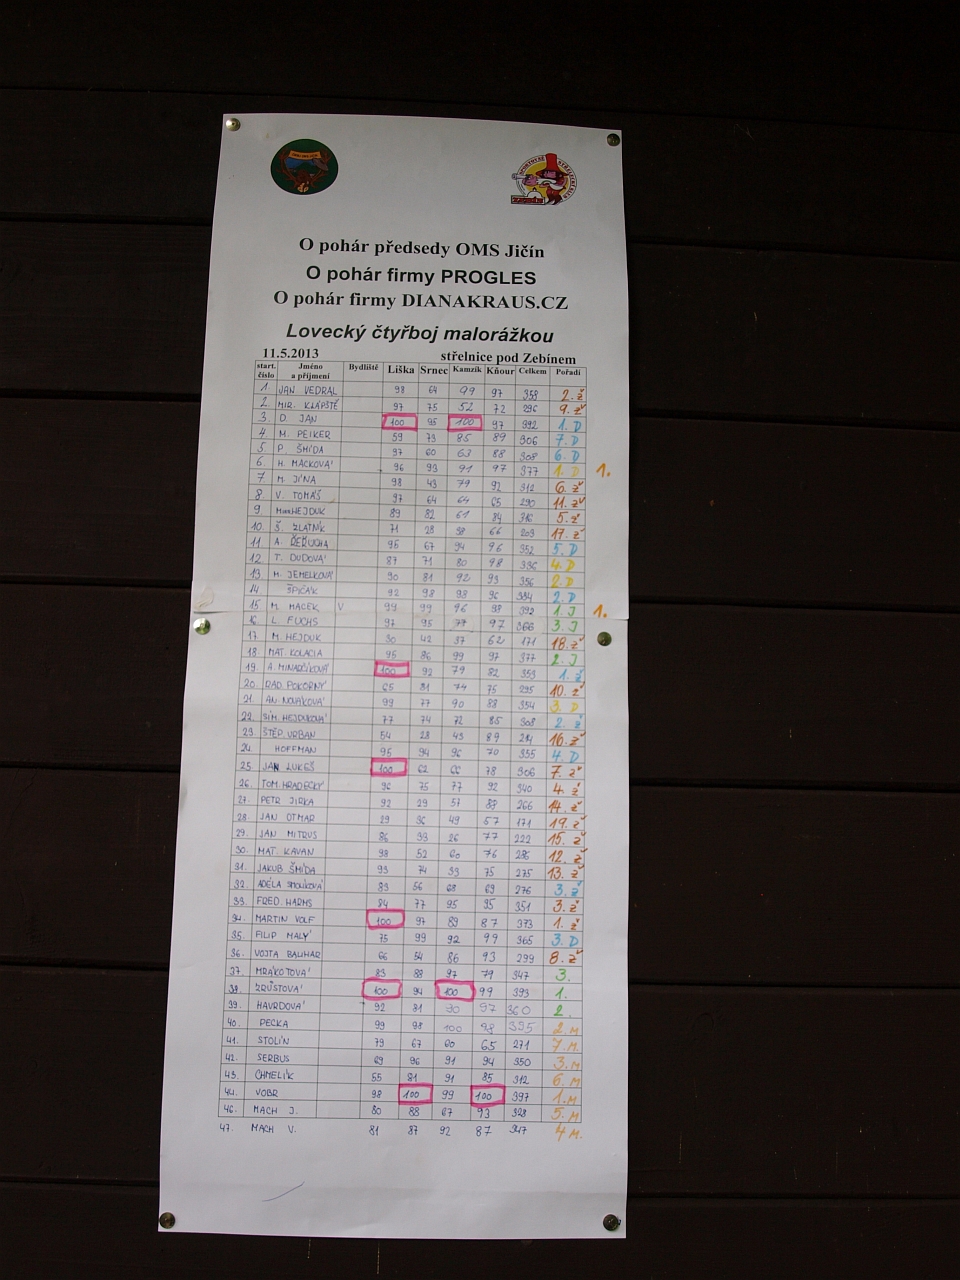 O pohár předsedy OMS Jičín
O pohár firmy PROGLES
O pohár firmy DIANAKRAUS.CZ
Lovecký čtyřboj malorážkou
11.5.2013 střelnice pod Zebínem
start. číslo Jméno a příjmení Bydliště Liška Srnec Kamzík Kňour Celkem Pořadí
1. JAN VEDRAL 98 64 99 97 358 2. ž
2. MIR. KLÁPŠTĚ 97 75 52 72 296 9. ž
3. D. JAN 100 95 100 97 392 1. D
4. M. PEIKER 59 73 85 89 306 7. D
5 P. ŠMÍDA 97 60 63 88 308 6. D
6. H. MACKOVÁ 96 93 91 97 377 1. D 1.
7 M. JÍNA 98 43 79 92 312 6. ž
8 V. TOMÁŠ 97 64 64 65 290 11. ž
9 HEJDUK 89 82 61 84 316 5. ž
10. Š. ZLATNÍK 71 28 38 66 203 17. ž
11 A. ŘEŘUCHA 95 67 94 96 352 5. D
12 T. DUDOVÁ 87 71 80 98 336 4. D
13 M. JEMELKOVÁ 90 81 92 93 356 2. D
14 ŠPIČÁK 92 98 98 96 384 2. D
15 M. MACEK V 99 99 96 98 392 1. J 1.
16 L. FUCHS 97 95 77 97 366 3. J
17. M. HEJDUK 30 42 37 62 171 18. ž
18 MAT. KOLACIA 95 86 99 97 377 2. J
19. A. MINAŘČÍKOVÁ 100 92 79 82 353 1. ž
20 RAD. POKORNÝ 65 81 74 75 295 10. ž
21. AN. NOVÁKOVÁ 99 77 90 88 354 3. D
22. SIM. HEJDUKOVÁ 77 74 72 85 308 2. ž
23. ŠTĚP. URBAN 54 28 43 89 214 16. ž
24. HOFFMAN 95 94 96 70 355 4. D
25. JAN LUKEŠ 100 62 66 78 306 7. ž
26. TOM. HRADECKÝ 96 75 77 92 340 4. ž
27. PETR JIRKA 92 29 57 88 266 14. ž
28. JAN OTMAR 29 36 49 57 171 19. ž
29. JAN MITRUS 86 33 26 77 222 15. ž
30. MAT. KAVAN 98 52 60 76 286 12. ž
31. JAKUB ŠMÍDA 93 74 33 75 275 13. ž
32. ADÉLA SMOLÍKOVÁ 83 56 68 69 276 3. ž
33. FRED. HARMS 84 77 95 95 351 3. ž
34. MARTIN VOLF 100 97 89 87 373 1. ž
35. FILIP MALÝ 75 99 92 99 365 3. D
36. VOJTA BALIHAR 66 54 86 93 299 8. ž
37. MRÁKOTOVÁ 83 88 97 79 347 3.
38. ZRŮSTOVÁ 100 94 100 99 393 1.
39. HAVRDOVÁ 92 81 90 97 360 2.
40. PECKA 99 98 100 98 395 2. M
41. STOLÍN 79 67 60 65 271 7. M.
42. SERBUS 69 96 91 94 350 3. M
43. CHMELÍK 55 81 91 85 312 6. M
44. VOBR 98 100 99 100 397 1. M
46. MACH J. 80 88 67 93 328 5. M
47. MACH V. 81 87 92 87 347 4 M.